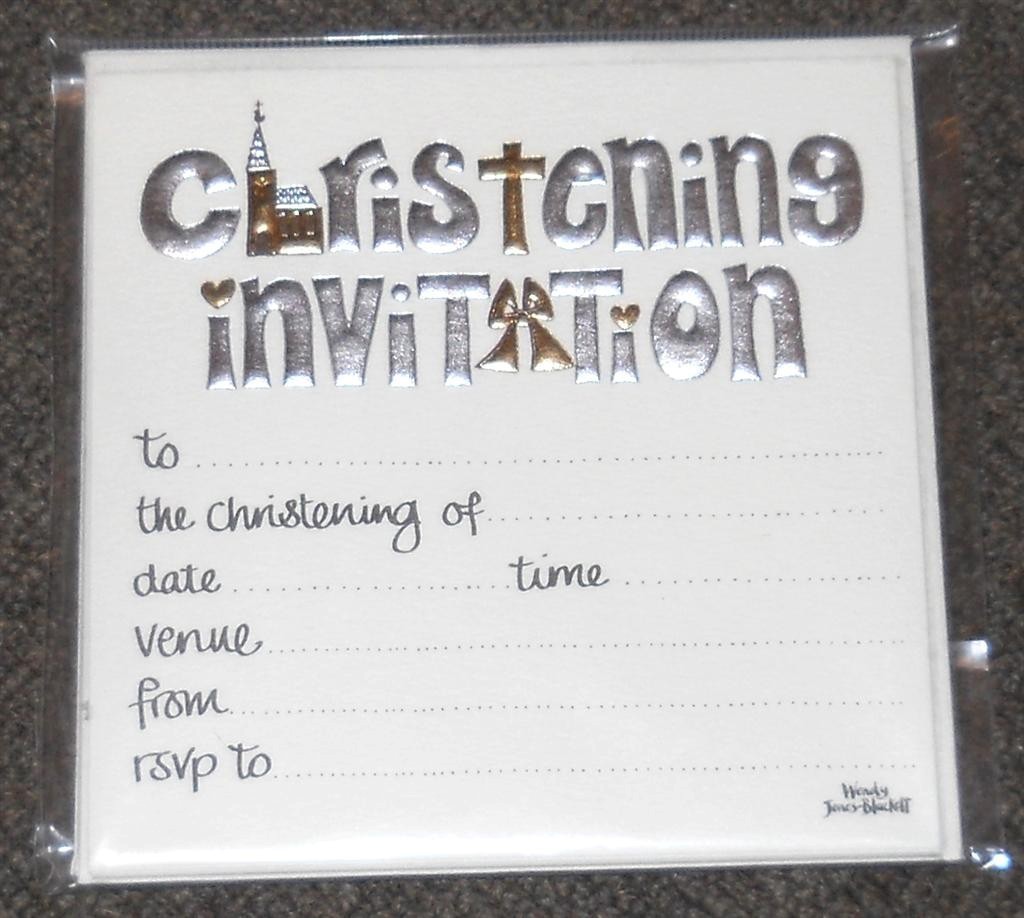 christening
invitation
to ..........
the christening of ..........
date .......... time ..........
venue ..........
from ..........
rsvp to ..........
Wendy
Jones-Blackett